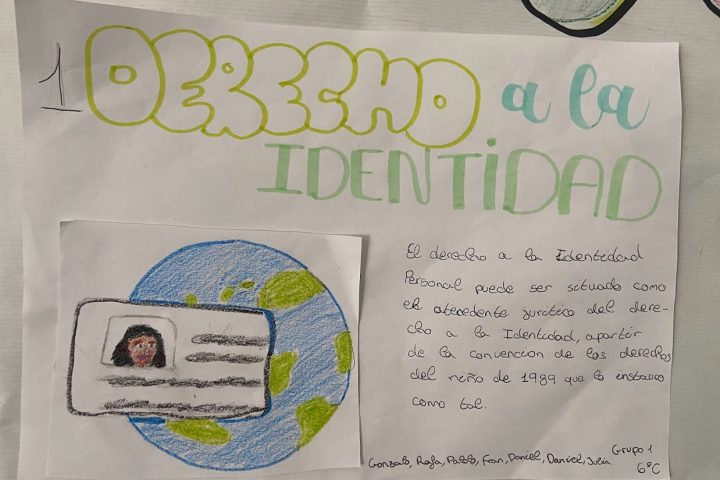 1 DERECHO a la
IDENTIDAD
El derecho a la Identidad
Personal puede ser situado como
el atecedente juritico del dere-
cho a la Identidad, apartir
de la convencion de los derechos
del niño de 1989 que lo instauro
como tal.
Grupo 1
Gonzalo, Rafa, Pablo, Fran, Daniel, Daniel, Julia
6ºC